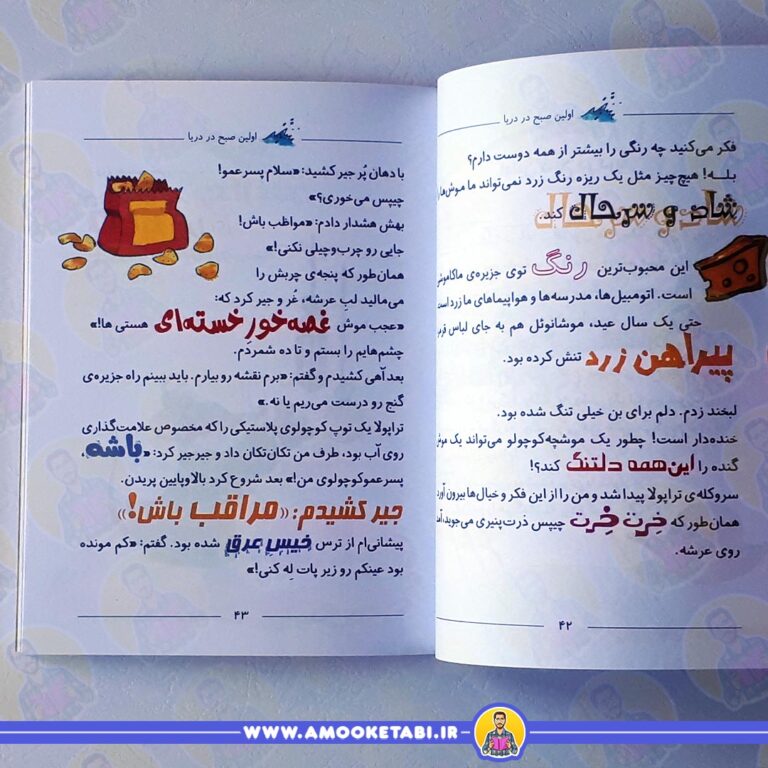 اولین صبح در دریا
فکر می‌کنید چه رنگی را بیشتر از همه دوست دارم؟
بلـه! هیچ‌چیز مثل یک ریزه رنگ زرد نمی‌تواند ما موش‌ها را
شاد و سرحال کند.
این محبوب‌ترین رنگ توی جزیره‌ی ماکاموشی
است. اتومبیل‌ها، مدرسه‌ها و هواپیماهای ما زرد است
حتی یک سال عید، موشانوئل هم به جای لباس
پیراهن زرد تنش کرده بود.
لبخند زدم. دلم برای بن خیلی تنگ شده بود.
خنده‌دار است! چطور یک موشچه‌کوچولو می‌تواند یک
گنده را این‌همه دلتنگ کند؟!
سروکله‌ی تراپولا پیدا شد و من را از این فکر و خیال‌ها بیرون
همان‌طور که خِرِت خِرِت چیپس ذرت‌پنیری می‌جوید،
روی عرشه.
۴۲
اولین صبح در دریا
با دهان پُر جیر کشید: «سلام پسرعمو!
چیپس می‌خوری؟»
بهش هشدار دادم: «مواظب باش!
جایی رو چرب‌وچیلی نکنی!»
همان‌طور که پنجه‌ی چربش را
می‌مالید لبِ عرشه، غُر و جیر کرد که:
«عجب موش غصه‌خورِ خسته‌ای هستی ها!»
چشم‌هایم را بستم و تا ده شمردم.
بعد آهی کشیدم و گفتم: «برم نقشه رو بیارم. باید ببینم راه جزیره‌ی
گنج رو درست می‌ریم یا نه.»
تراپولا یک توپ کوچولوی پلاستیکی را که مخصوص علامت‌گذاری
روی آب بود، طرف من تکان‌تکان داد و جیرجیر کرد: «باشه،
پسرعموکوچولوی من!» بعد شروع کرد بالاوپایین پریدن.
جیر کشیدم: «مراقب باش!»
پیشانی‌ام از ترس خیسِ عرق شده بود. گفتم: «کم مونده
بود عینکم رو زیر پات لِه کنی!»
۴۳
WWW.AMOOKETABI.IR